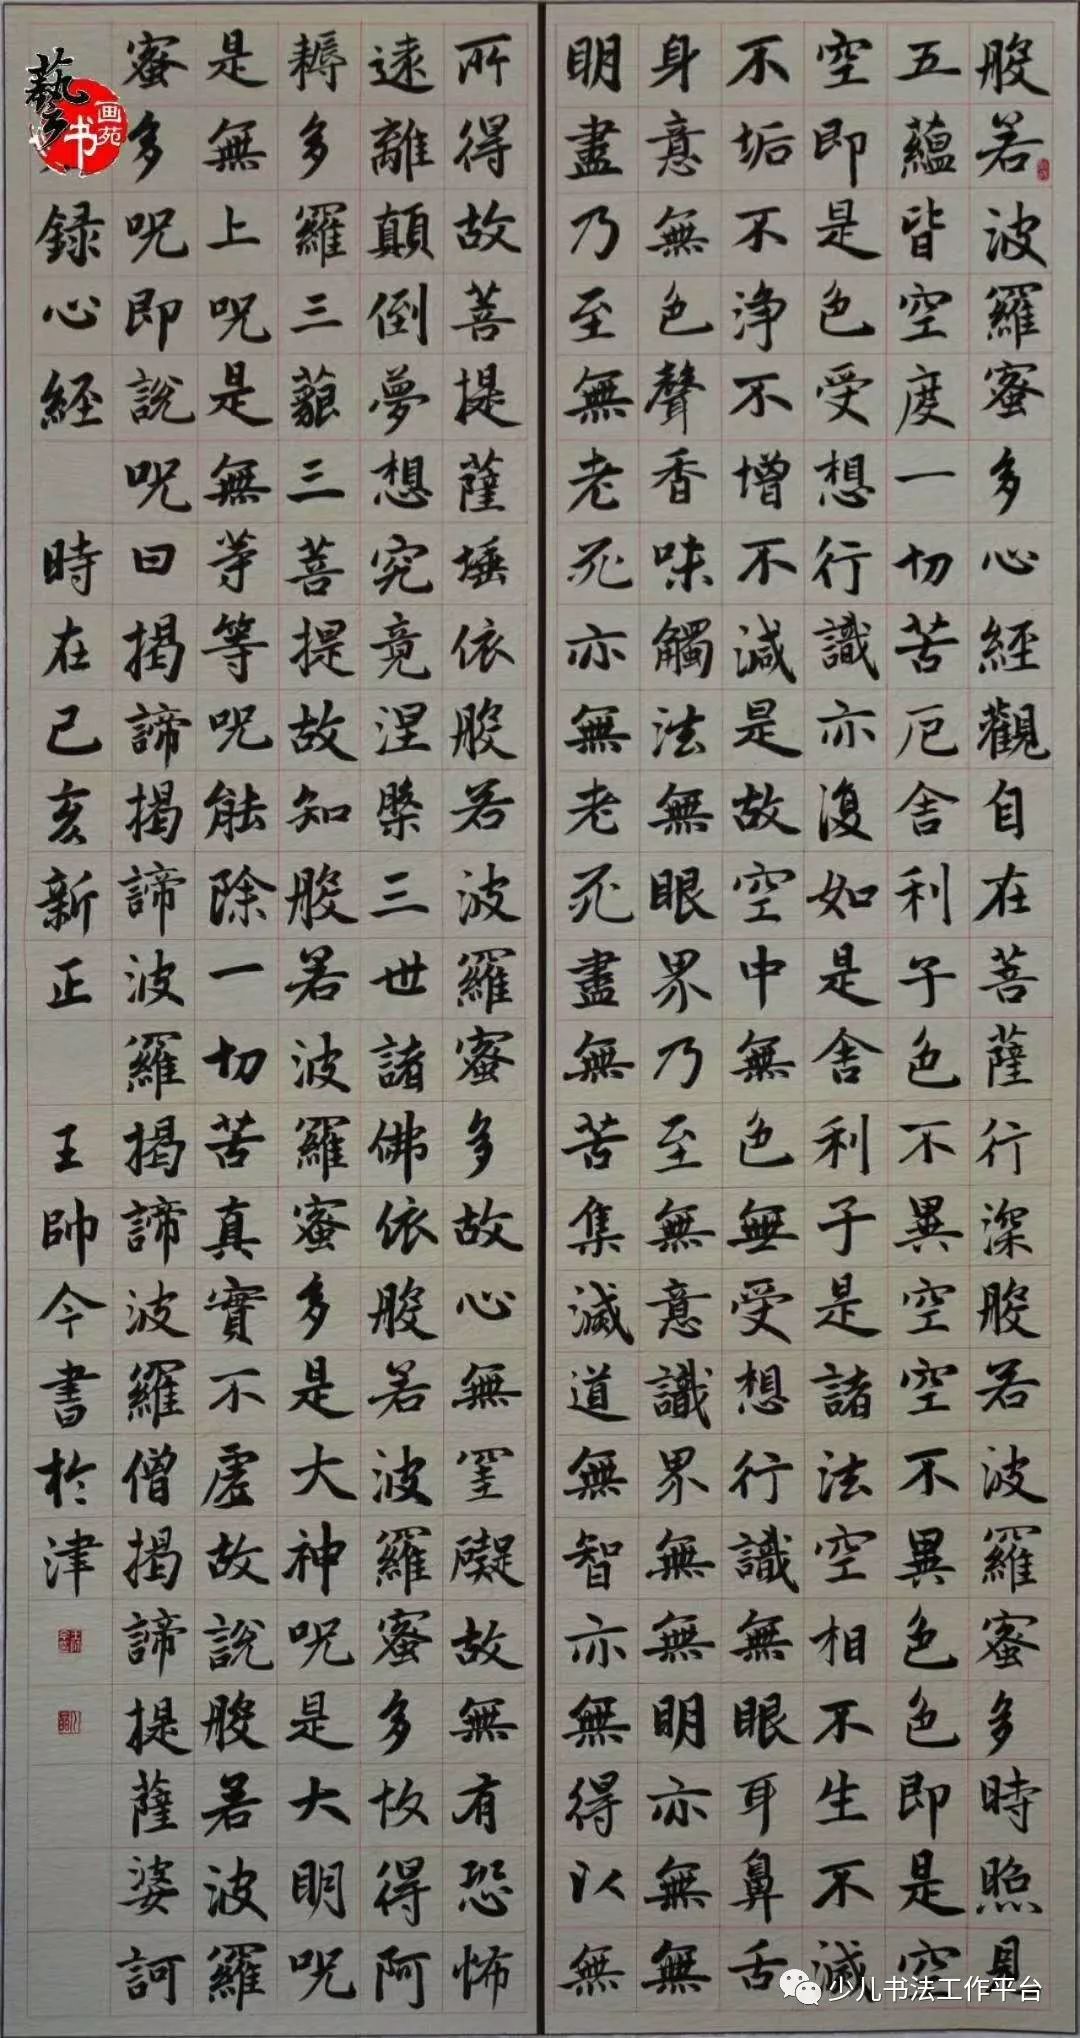 般若波羅蜜多心經觀自在菩薩行深般若波羅蜜多時照見
五蘊皆空度一切苦厄舍利子色不異空空不異色色即是空
空即是色受想行識亦復如是舍利子是諸法空相不生不滅
不垢不浄不增不減是故空中無色無受想行識無眼耳鼻舌
身意無色聲香味觸法無眼界乃至無意識界無無明亦無無
明盡乃至無老死亦無老死盡無苦集滅道無智亦無得以無
所得故菩提薩埵依般若波羅蜜多故心無罣礙故無有恐怖
遠離顛倒夢想究竟涅槃三世諸佛依般若波羅蜜多故得阿
耨多羅三藐三菩提故知般若波羅蜜多是大神呪是大明呪
是無上呪是無等等呪能除一切苦真實不虛故說般若波羅
蜜多呪即說呪曰揭諦揭諦波羅揭諦波羅僧揭諦提薩婆訶
錄心經 時在己亥新正 王帥今書於津
藝
书
画苑
少儿书法工作平台